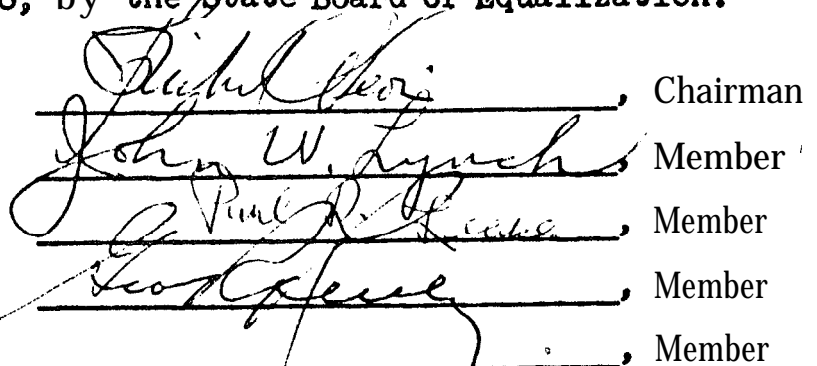 , by the State Board of Equalization.
, Chairman
John W. Lynch, Member
Paul R. Leake, Member
, Member
, Member